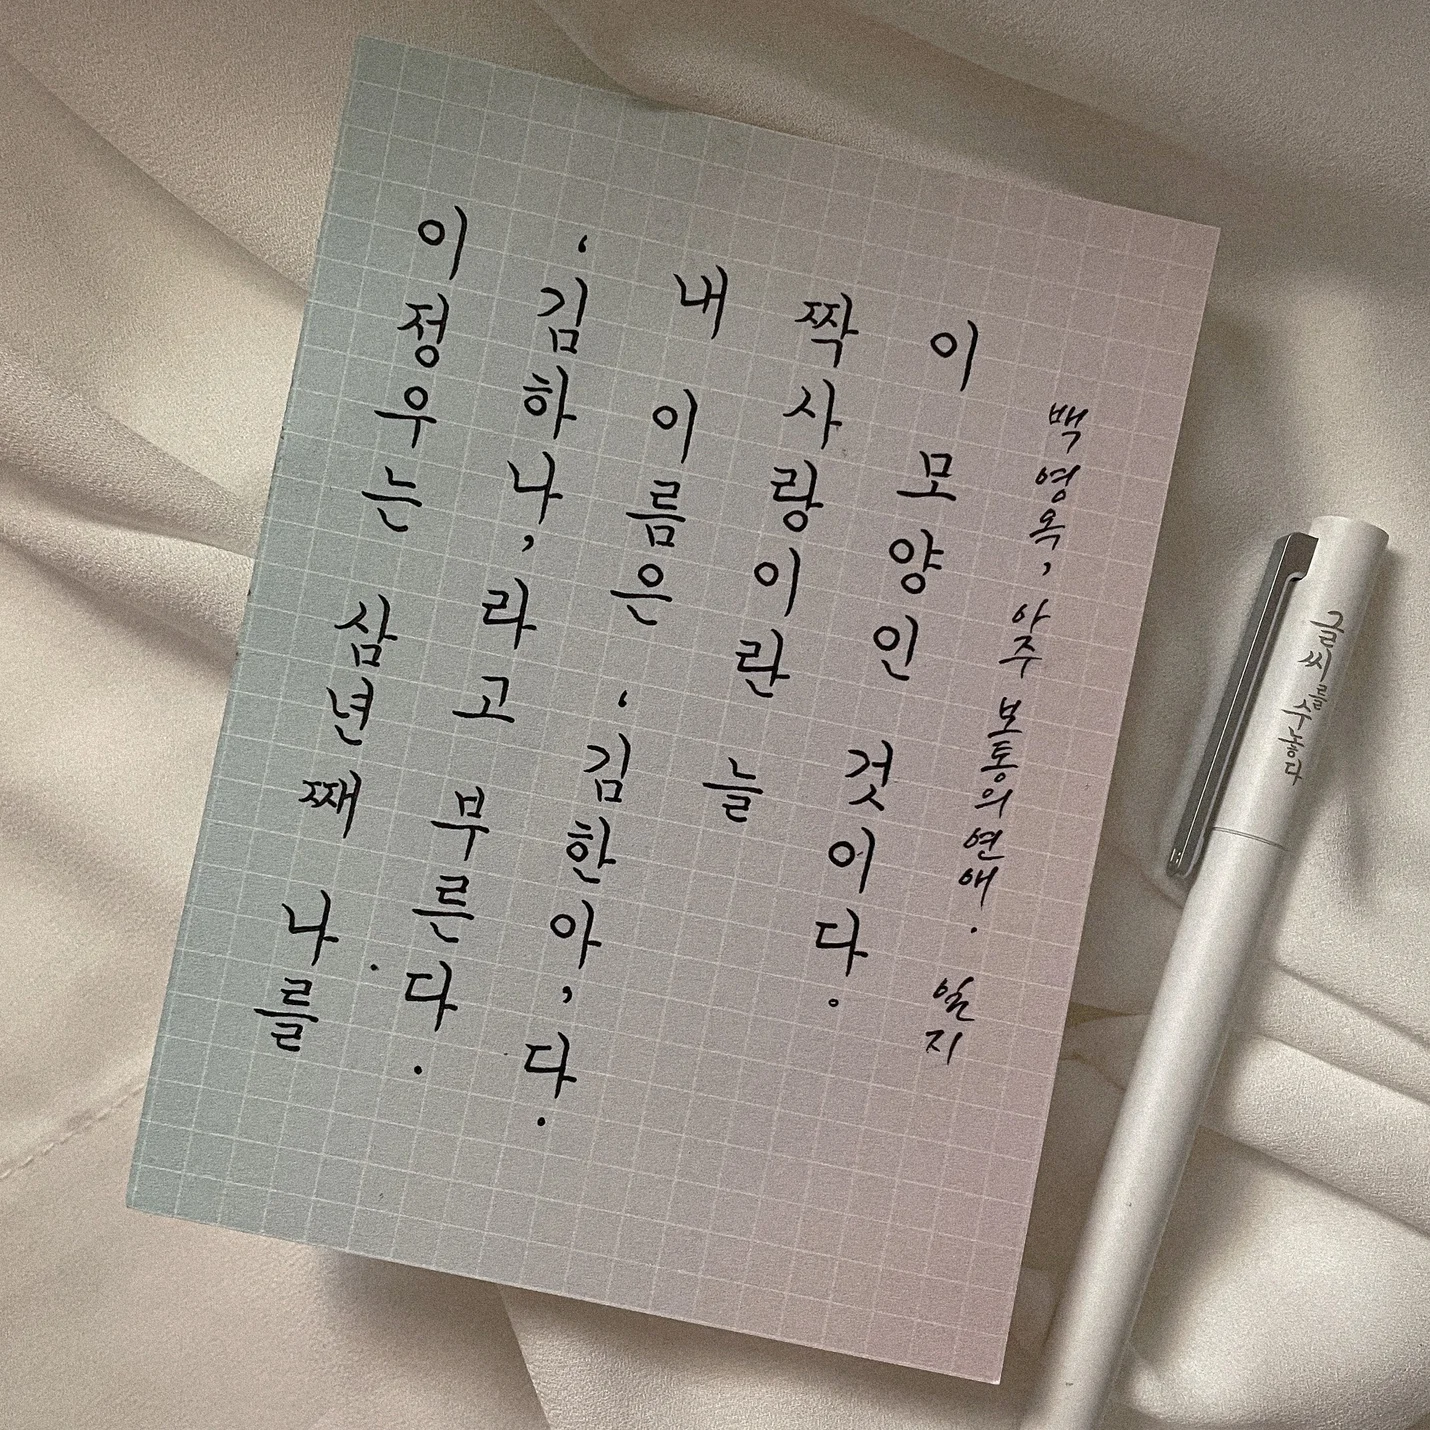 이정우는 삼년째 나를
‘김하나,라고 부른다.
내 이름은 ‘김한아,다.
짝사랑이란 늘
이 모양인 것이다.
백영옥, 아주 보통의 연애.
글씨를 수놓다